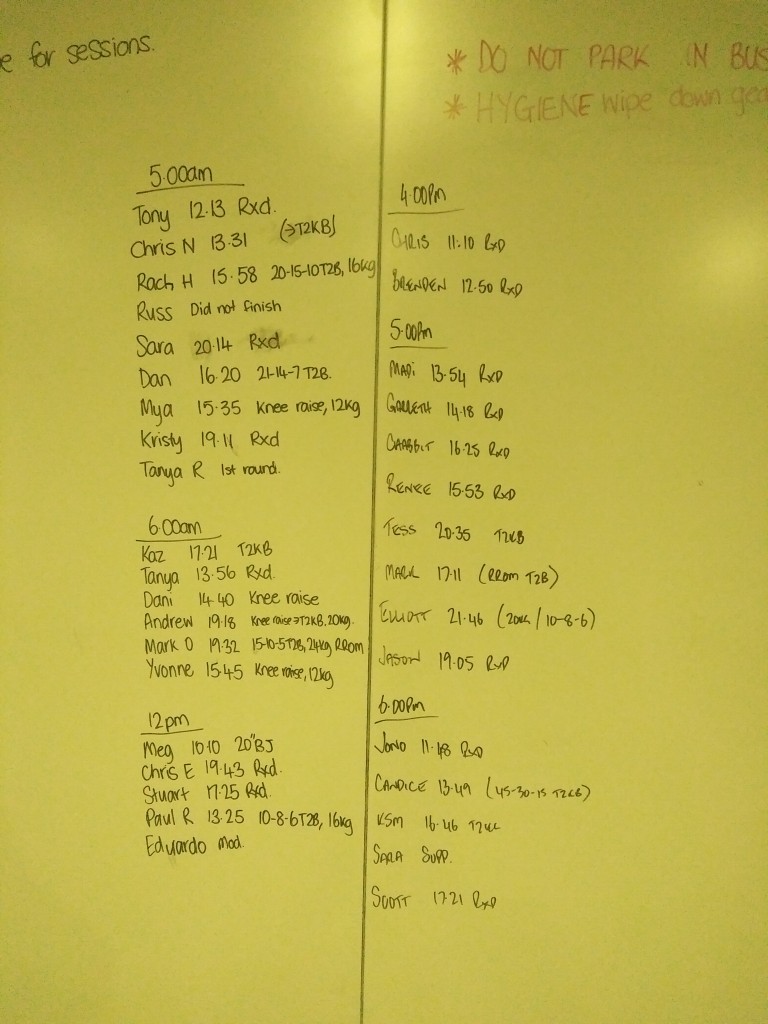 e for sessions.
* DO NOT PARK IN BUS
* HYGIENE wipe down gea
5.00am
Tony 12.13 Rxd.
Chris N 13.31 (→T2KB)
Rach H 15.58 20-15-10 T2B, 16kg
Russ Did not finish
Sara 20.14 Rxd
Dan 16.20 21-14-7 T2B.
Mya 15.35 Knee raise, 12kg
Kristy 19.11 Rxd
Tanya R 1st round.
6.00am
Kaz 17.21 T2KB
Tanya 13.56 Rxd.
Dani 14.40 Knee raise
Andrew 19.18 Knee raise→T2KB, 20kg.
Mark O 19.32 15-10-5 T2B, 24kg RROM
Yvonne 15.45 Knee raise, 12kg
12pm
Meg 10.10 20"BJ
Chris E 19.43 Rxd.
Stuart 17.25 Rxd.
Paul R 13.25 10-8-6 T2B, 16kg
Eduardo Mod.
4.00Pm
CHRIS 11.10 RxD
BRENDEN 12.50 RxD
5.00Pm
MADi 13.54 RxD
GARRETH 14.18 RxD
16.25 RxD
RENEE 15.53 RxD
TESS 20.35 T2KB
MARK 17.11 (RROM T2B)
ELLIOTT 21.46 (20KG / 10-8-6)
JASON 19.05 RxD
6.00Pm
JONO 11.48 RxD
CANDICE 13.49 (45-30-15 T2KB)
KSM 16.46
SARA SUPP.
SCOTT 17.21 RxD